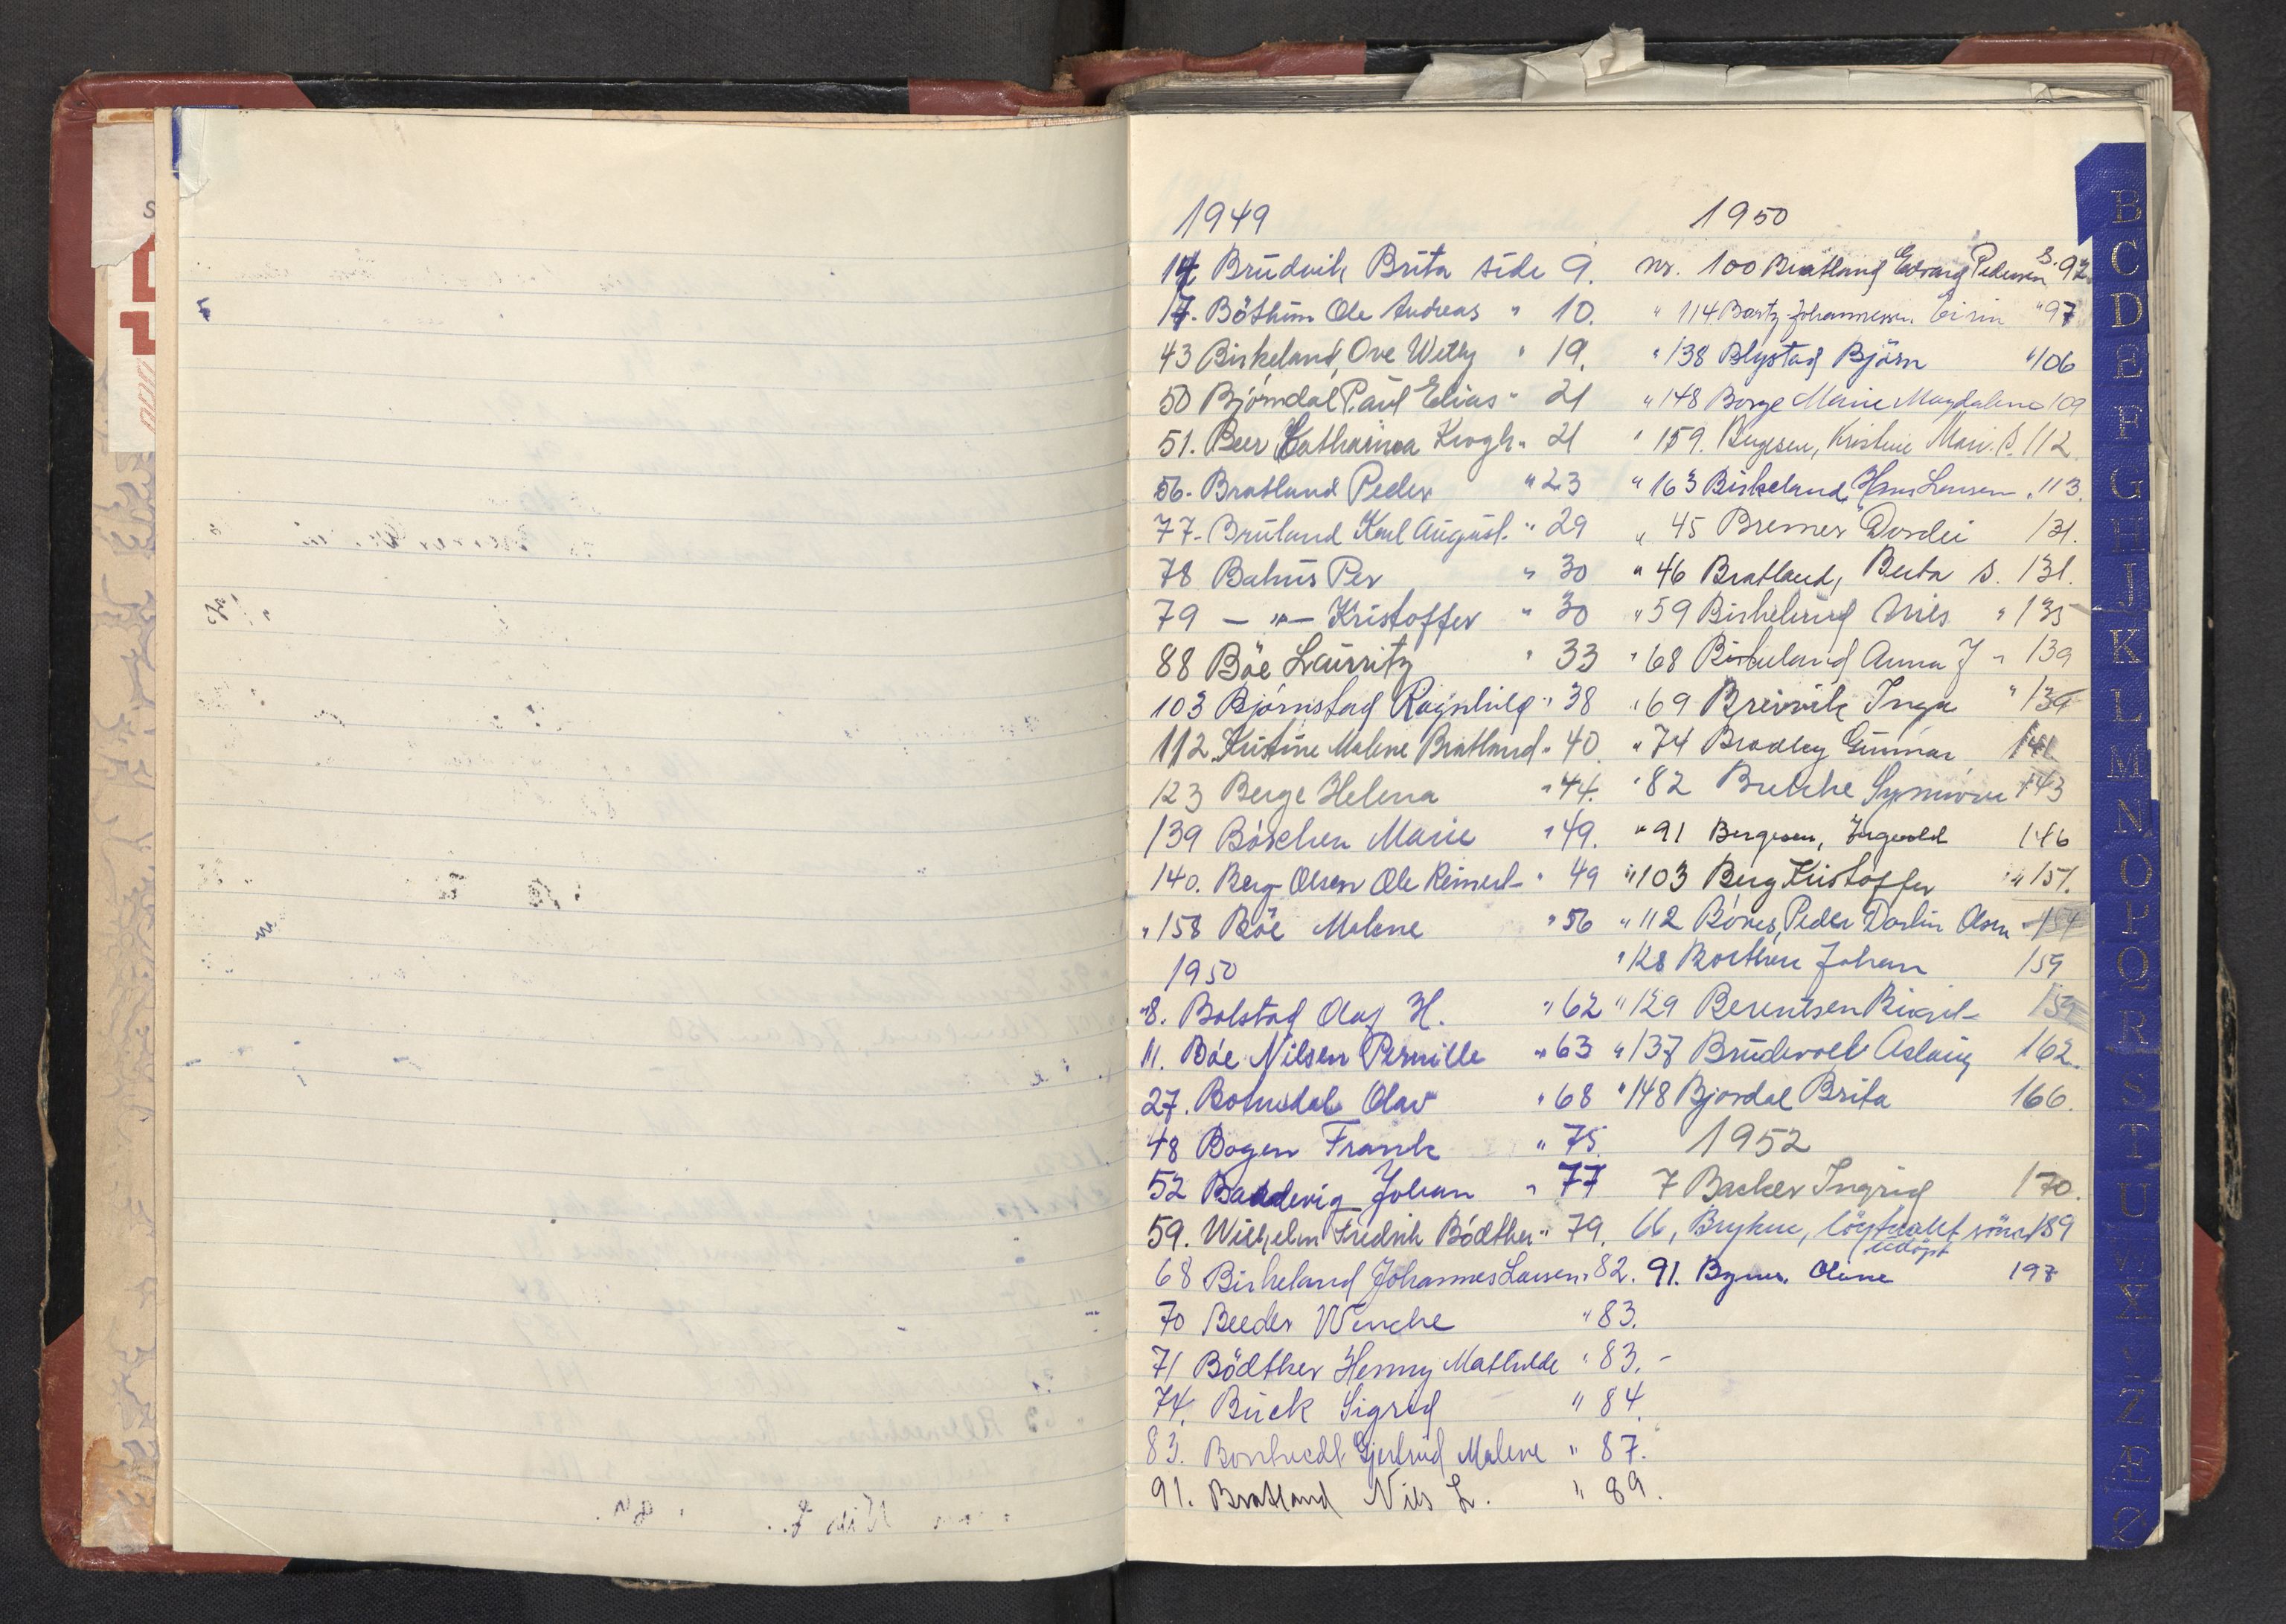 1949
14 Brudvik Brita side 9.
17. Böthun Ole Andreas " 10.
43 Birkeland, Ove Witly " 19.
50 Bjørndal Paul Elias " 21
51. Beer Katharina Krogh " 21
56. Bratland Peder " 23
77. Bruland Karl August. " 29
78 Bahus Per " 30
79 — " — Kristoffer " 30
88 Böe Lauritz " 33
103 Bjørnstad Ragnhild " 38
112 Kristine Malene Bratland " 40
123 Berge Helena " 44.
139 Böschen Marie " 49.
140. Berg-Olsen Ole Reinert " 49
" 158 Böe Malene " 56
1950
"8. Bolstad Olaf H. " 62
11. Böe Nilsen Pernille " 63
27. Botnedal Olav " 68
48 Bogen Frank " 75.
52 Baadevig Johan " 77
59. Wilhelm Fredrik Bödtker " 79.
68 Birkeland Johannes Larsen " 82.
70 Beeder Wenche " 83.
71 Bödtker Henny Mathilde " 83.-
74. Buck Sigrid " 84.
83. Gjertrud Malene " 87.
91. Bratland Nils L. " 89.
1950
nr. 100 Bratland Edvard Pedersen S. 92
" 114 Bartz-Johannessen. Eirin " 97
" 138 Blystad Bjørn " 106
" 148 Borge Marie Magdalene 109
" 159. Kristine Mari. S. 112.
" 163 Birkeland, Hans Larsen " 113.
" 45 Bremer Dordei 131.
" 46 Bratland, Berta s. 131.
" 59 Birkeland Nils " 135
" 68 Birkeland Anna J " 139
" 69 Breivik Inga " 139
" 74 Bradley Gunnar 141
" 82 Synnøve 143
" 91 Bergesen, Ingvald 146
" 103 Berg Kristoffer " 151.
" 112 Bönes, Peder Olsen 154
" 128 Johan 159
" 129 Berentsen 159
" 137 Brudevoll Aslaug 162.
" 148 Bjordal Brita 166.
1952
7 Backer Ingrid 170.
66, 189
udöpt
91. Olene 197
B
C
D
E
F
G
H
I
J
K
L
M
N
O
P
Q
R
S
T
U
Z
Æ
Ø